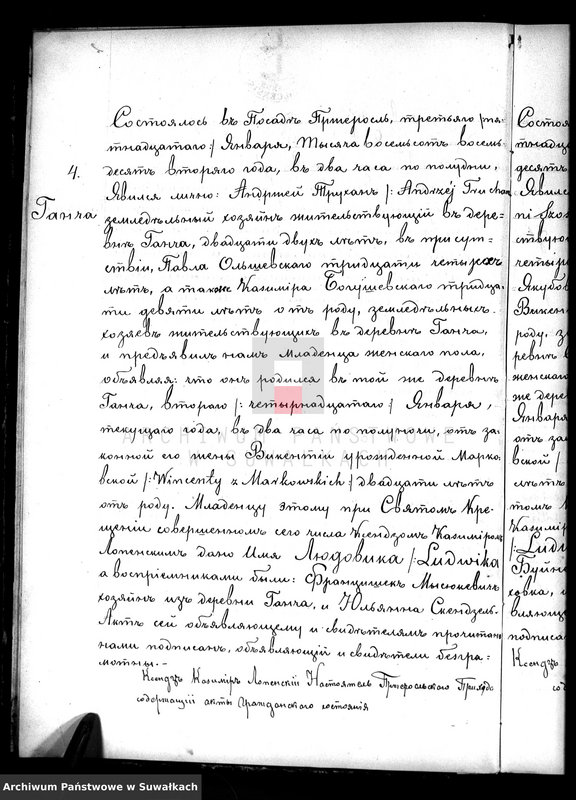 Состоялось въ Посадѣ Пржеросль, третьяго /пят-
4.
Ганча
тнадцатаго:/ Января, Тысяча восемьсотъ восемь-
десятъ втораго года, въ два часа по полудни,
Явился лично: Андржей Трухан /: Andrzéj Truchan
земледѣльный хозяинъ жительствующій въ дере-
внѣ Ганча, двадцати двухъ лѣтъ, въ присут-
ствіи, Павла Ольшевскаго тридцати четырехъ
лѣтъ, а также Казиміра Богушевскаго тридца-
ти девяти лѣтъ отъ роду, земледѣльныхъ
хозяевъ жительствующихъ въ деревнѣ Ганча,
и предъявилъ намъ Младенца женскаго пола,
объявляя: что онъ родился въ той же деревнѣ
Ганча, втораго /: четырнадцатаго:/ Января,
текущаго года, въ два часа по полуночи, отъ за-
конной его жены Викентіи урожденной Марко-
вской /: Wincenty z Markowskich :/ двадцати лѣтъ
отъ роду. Младенцу этому при Святомъ Кре-
щеніи совершенномъ сего числа Ксендзомъ Казиміромъ
Лопенскимъ дано Имя Людовика /: Ludwika
а воспріемниками были: Францишек Мысюкевичъ
хозяинъ изъ деревни Ганча, и Юльянна Скендзель.
Актъ сей объявляющему и свидѣтелямъ прочитанъ
нами подписанъ, объявляющій и свидѣтели безгра-
мотны.-
Ксендзъ Казиміръ Лопенскій Настоятель Пржеросльскаго Прихода
содержащій акты гражданскаго состоянія
Состоя
тнадца
десятъ
Явилс
ствую
четыр
Якубо
Викен
роду, з
ревнѣ
женскаго
же дере
Января
отъ за
вской /
лѣтъ
томъ
Казимір
/: Ludw
Буйн
ховка, и
вляюще
подписа
Ксендзъ
сод
ARCHIWUM PAŃSTWOWE
W SUWAŁKACH
Archiwum Państwowe w Suwałkach